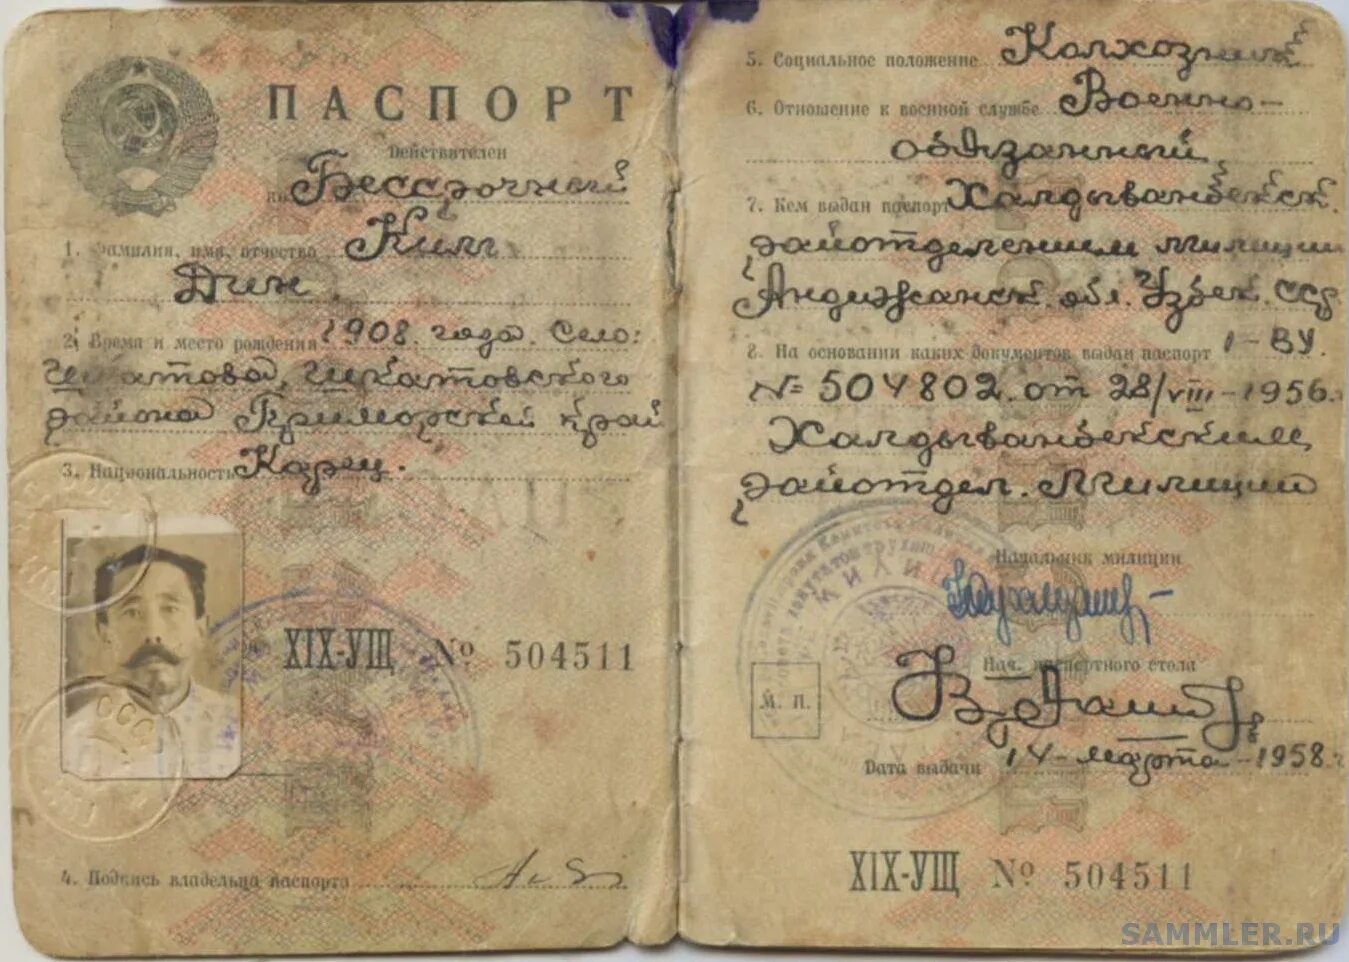 ПАСПОРТ
Действителен
на Бессрочный
1. Фамилия, имя, отчество Ким
Дин
2. Время и место рождения 1908. года. Село:
Шкатова, Шкатовского
района Приморский край
3. Национальность Карец.
СССР
XIX-УЩ № 504511
4. Подпись владельца паспорта
5. Социальное положение Колхозник
6. Отношение к военной службе Военно-
обязанный
7. Кем выдан паспорт Халдыванбекск.
райотделением милиции
Андижанск. обл. Узбек. ССР
8. На основании каких документов выдан паспорт 1-ВУ.
№ 504802. от 28/VIII-1956.
Халдыванбекским
райотдел. милиции
Начальник милиции
Нач. паспортного стола
М. П.
Дата выдачи 14-марта-1958.г
XIX-УЩ № 504511
SAMMLER.RU